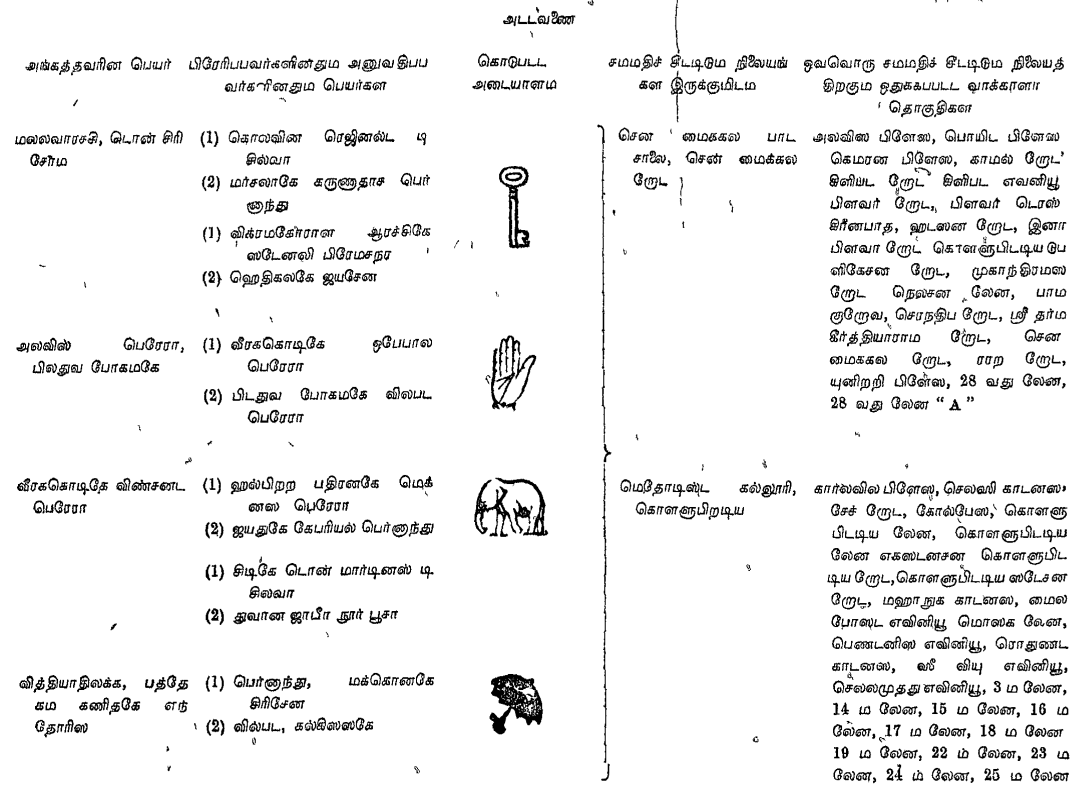 அட்டவணை
அங்கத்தவரின பெயர்
பிரேரிபபவர்களினதும அனுவதிபப
வர்களினதும பெயர்கள
கொடுபட்ட
அடையாளம
சமமதிச் சீட்டிடும நிலையங்
கள இருக்குமிடம
ஒவவொரு சமமதிச் சீட்டிடும நிலையத்
திறகும ஒதுககபபட்ட வாக்காளா
தொகுதிகள
மலலவாரசசி, டொன் சிரி
சேர்ம
(1) கொலவின ரெஜினல்ட டி
சில்வா
(2) மர்சலாகே கருணாதாச பெர்
னாந்து
(1) விக்ரமகோராள ஆரச்சிகே
ஸ்டேனலி பிரேமசநர
(2) ஹெதிகலகே ஜயசேன
அலவிஸ் பெரேரா,
பிலதுவ போகமகே
(1) வீரககொடிகே ஒபேபால
பெரேரா
(2) பிடதுவ போகமகே விலபட
பெரேரா
வீரககொடிகே விண்சனட
பெரேரா
(1) ஹல்பிறற பதிரனகே மெக்
னஸ பெரேரா
(2) ஜயதுகே கேபரியல் பெர்னாந்து
(1) சிடிகே டொன் மார்டினஸ் டி
சிலவா
(2) துவான ஜாபீா நூர் பூசா
வித்தியாதிலக்க, பத்தே
கம கணிதகே எந்
தோரிஸ
(1) பெர்னாந்து, மக்கொனகே
கிரிசேன
(2) வில்பட, கல்கிஸஸகே
சென மைககல பாட
சாலை, சென் மைக்கல
றோட
அலவிஸ பிளேஸ, பொயிட பிளேஸ
கெமரன பிளேஸ, காமல் றோட்
கிளியட றோட் கிளிபட எவனியூ
பிளவர் றோட, பிளவர் டெரஸ்
கிரீனபாத, ஹடஸன றோட, இனா
பிளவா றோட் கொளளுபிட்டிய டுப
ளிகேசன றோட, முகாந்திரமஸ
றோட நெலசன லேன, பாம
குறோவ, செரநதிப றோட, ஸ்ரீ தர்ம
கீர்த்தியாராம றோட, சென
மைககல றோட, ரரற றோட,
யுனிறறி பிளேஸ, 28 வது லேன,
28 வது லேன “A”
மெதோடிஸ்ட கல்லூரி,
கொளளுபிறடிய
கார்லவில பிளேஸ், செலஸி காடனஸ,
சேச் றோட, கோல்பேஸ, கொளளு
பிட்டிய லேன, கொளளுபிடடிய
லேன எகஸடனசன கொளளுபிட
டிய றோட, கொளளுபிட்டிய ஸடேசன
றோட, மஹாநுக காடனஸ, மைல
போஸட எவினியூ மொஸக லேன,
பெணடனிஸ எவினியூ, ரொதுணட
காடனஸ, ஸீ வியு எவினியூ,
செலலமுதது எவினியூ, 3 ம லேன,
14 ம லேன, 15 ம லேன, 16 ம
லேன, 17 ம லேன, 18 ம லேன
19 ம லேன, 22 ம் லேன, 23 ம
லேன, 24 ம் லேன, 25 ம லேன